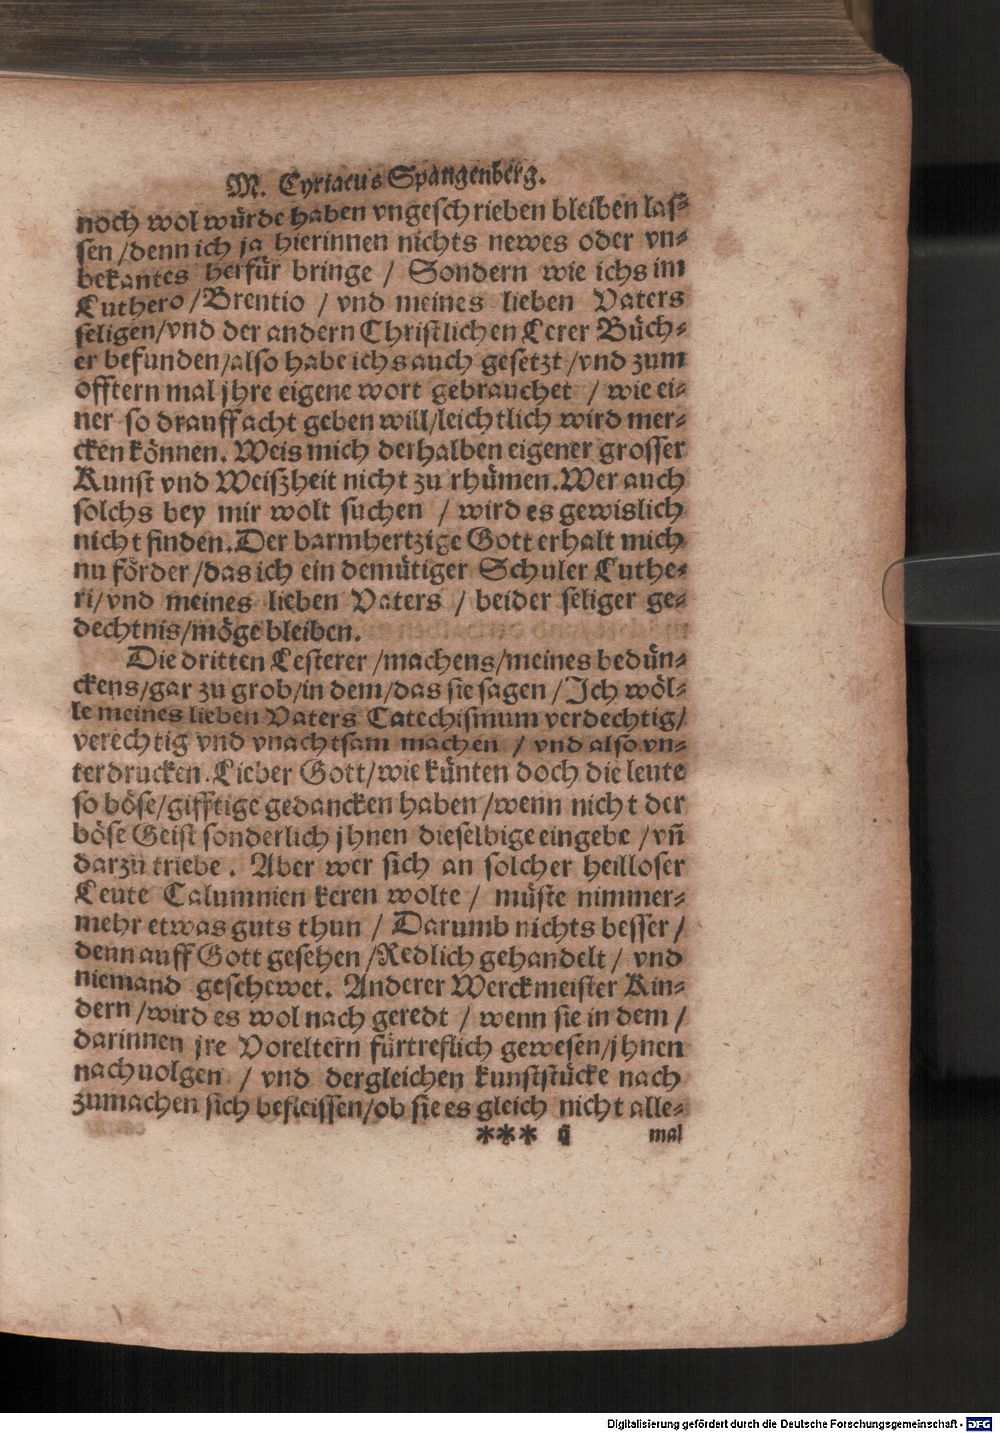 M. Cyriacus Spangenberg.
noch wol würde haben vngeschrieben bleiben las-
sen /denn ich ja hierinnen nichts newes oder vn-
bekantes herfür bringe / Sondern wie ichs im
Luthero /Brentio / vnd meines lieben Vaters
seligen/vnd der andern Christlichen Lerer Büch-
er befunden/also habe ichs auch gesetzt /vnd zum
offtern mal jhre eigene wort gebrauchet / wie ei-
ner so drauff acht geben will/leichtlich wird mer-
cken können. Weis mich derhalben eigener grosser
Kunst vnd Weißheit nicht zu rhümen. Wer auch
solchs bey mir wolt suchen / wird es gewislich
nicht finden. Der barmhertzige Gott erhalt mich
nu förder /das ich ein demütiger Schuler Luthe-
ri/vnd meines lieben Vaters / beider seliger ge-
dechtnis/möge bleiben.
Die dritten Lesterer /machens/meines bedün-
ckens/gar zu grob/in dem/das sie sagen /Ich wöl-
le meines lieben Vaters Catechismum verdechtig/
verechtig vnd vnachtsam machen / vnd also vn-
terdrucken. Lieber Gott/wie künten doch die leute
so böse/gifftige gedancken haben /wenn nicht der
böse Geist sonderlich jhnen dieselbige eingebe /vn̄
darzu triebe. Aber wer sich an solcher heilloser
Leute Calumnien keren wolte / müste nimmer-
mehr etwas guts thun / Darumb nichts besser /
denn auff Gott gesehen /Redlich gehandelt / vnd
niemand geschewet. Anderer Werckmeister Kin-
dern /wird es wol nach geredt / wenn sie in dem /
darinnen jre Voreltern fürtreflich gewesen/jhnen
nachuolgen / vnd dergleichen kunststücke nach
zumachen sich befleissen/ob sie es gleich nicht alle-
*** ij mal
Digitalisierung gefördert durch die Deutsche Forschungsgemeinschaft - DFG